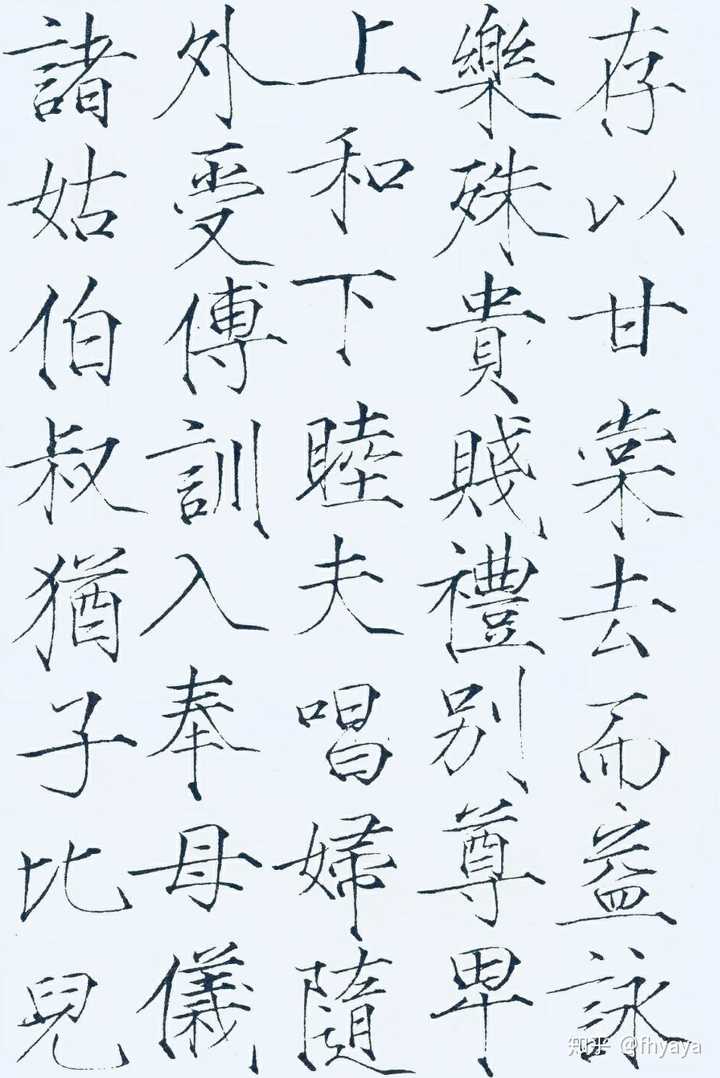 存以甘棠去而益詠
樂殊貴賤禮別尊卑
上和下睦夫唱婦隨
外受傅訓入奉母儀
諸姑伯叔猶子比兒
知乎 @fhyaya